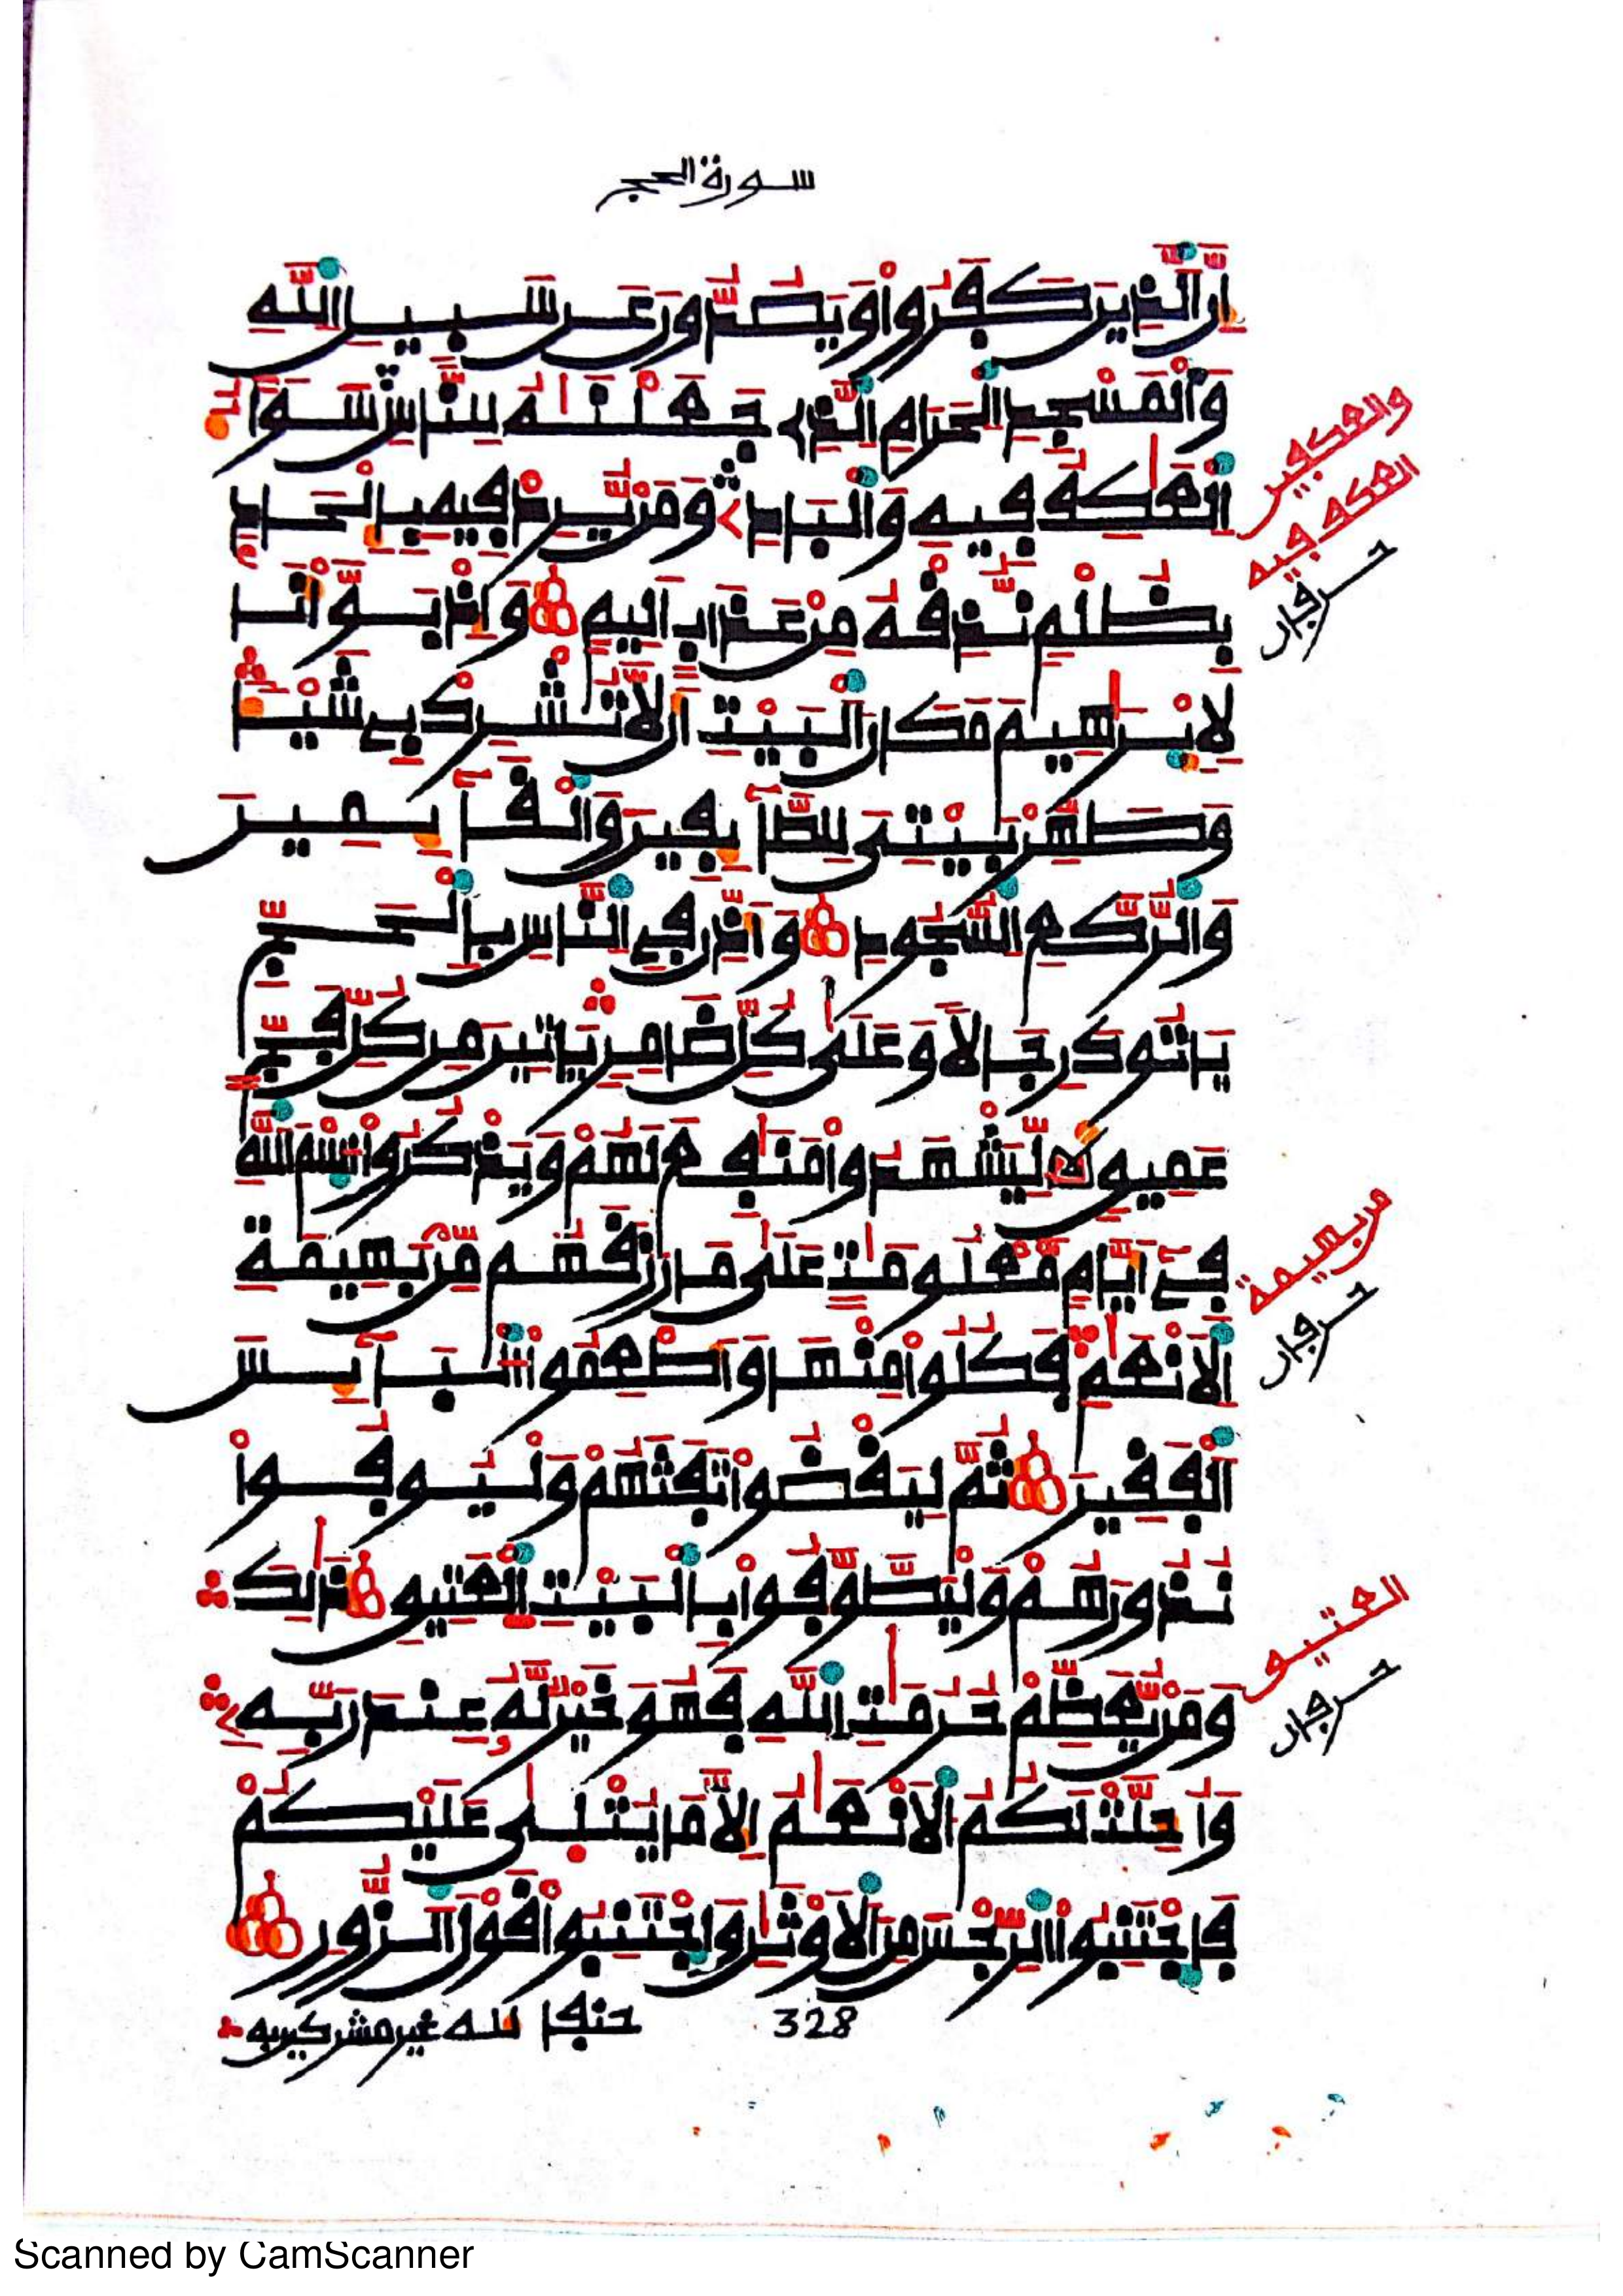 سورة الحج
إِنَّ الَّذِينَ كَفَرُواْ وَيَصُدُّونَ عَن سَبِيلِ اللَّهِ
وَالْمَسْجِدِ الْحَرَامِ الَّذِى جَعَلْنَٰهُ لِلنَّاسِ سَوَآءٌ
الْعَٰكِفُ فِيهِ وَالْبَادِ وَمَنْ يُّرِدْ فِيهِ بِإِلْحَادٍ
بِظُلْمٍ نُّذِقْهُ مِنْ عَذَابٍ أَلِيمٍ وَإِذْ بَوَّأْنَا
لِإِبْرَٰهِيمَ مَكَانَ الْبَيْتِ أَن لَّا تُشْرِكْ بِى شَيْـًٔا
وَطَهِّرْ بَيْتِى لِلطَّآئِفِينَ وَالْقَآئِمِينَ
وَالرُّكَّعِ السُّجُودِ وَأَذِّن فِى النَّاسِ بِالْحَجِّ
يَاتُوكَ رِجَالًا وَعَلَىٰ كُلِّ ضَامِرٍ يَاتِينَ مِن كُلِّ فَجٍّ
عَمِيقٍ لِّيَشْهَدُواْ مَنَٰفِعَ لَهُمْ وَيَذْكُرُواْ اسْمَ اللَّهِ
فِىٓ أَيَّامٍ مَّعْلُومَٰتٍ عَلَىٰ مَا رَزَقَهُم مِّنۢ بَهِيمَةِ
الْأَنْعَٰمِ فَكُلُواْ مِنْهَا وَأَطْعِمُواْ الْبَآئِسَ
الْفَقِيرَ ثُمَّ لِيَقْضُواْ تَفَثَهُمْ وَلْيُوفُواْ
نُذُورَهُمْ وَلْيَطَّوَّفُواْ بِالْبَيْتِ الْعَتِيقِ ذَٰلِكَ
وَمَنْ يُّعَظِّمْ حُرُمَٰتِ اللَّهِ فَهُوَ خَيْرٌ لَّهُ عِندَ رَبِّهِ
وَأُحِلَّتْ لَكُمُ الْأَنْعَٰمُ إِلَّا مَا يُتْلَىٰ عَلَيْكُمْ
فَاجْتَنِبُواْ الرِّجْسَ مِنَ الْأَوْثَٰنِ وَاجْتَنِبُواْ قَوْلَ الزُّورِ
حنفا لله غير مشركين به
328
والعكفين
العكف فيه
حرفان
من بهيمة
حرفان
العتيق
حرفان
Scanned by CamScanner